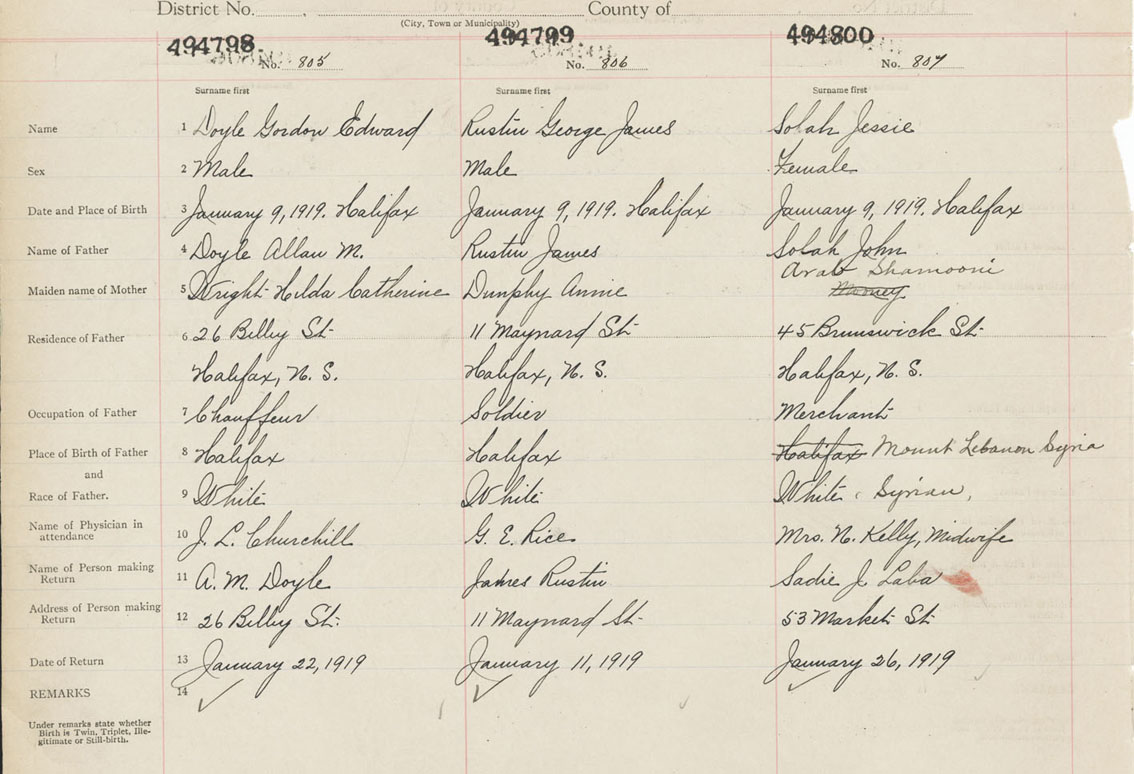 District No. County of
(City, Town or Municipality)
494798 494799 494800
No. 805 No. 806 No. 807
Surname first Surname first Surname first
Name 1 Doyle Gordon Edward Rustin George James Solah Jessie
Sex 2 Male Male Female
Date and Place of Birth 3 January 9, 1919. Halifax January 9, 1919. Halifax January 9, 1919. Halifax
Name of Father 4 Doyle Allan M. Rustin James Solah John
Arab Shamooni
Maiden name of Mother 5 Wright Hilda Catherine Dunphy Annie Mooney
Residence of Father 6 26 Bilby St 11 Maynard St 45 Brunswick St
Halifax, N. S. Halifax, N. S. Halifax, N. S.
Occupation of Father 7 Chauffeur Soldier Merchant
Place of Birth of Father 8 Halifax Halifax Halifax Mount Lebanon Syria
and
Race of Father. 9 White White White Syrian,
Name of Physician in
attendance 10 J. L. Churchill G. E. Rice Mrs. N. Kelly, Midwife
Name of Person making
Return 11 A. M. Doyle James Rustin Sadie J. Laba
Address of Person making
Return 12 26 Bilby St. 11 Maynard St 53 Market St
Date of Return 13 January 22, 1919 January 11, 1919 January 26, 1919
REMARKS 14 ✓ ✓ ✓
Under remarks state whether
Birth is Twin, Triplet, Ille-
gitimate or Still-birth.